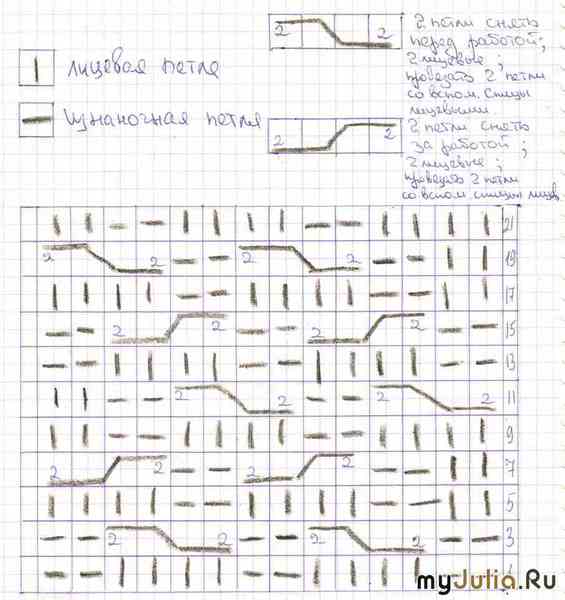 2 2
2 петли снять
перед работой;
2 лицевые;
провязать 2 петли
со вспом. спицы
лицевыми.
лицевая петля
изнаночная петля
2 2
2 петли снять
за работой;
2 лицевые;
провязать 2 петли
со вспом. спицы лицев.
21
2 2 2 2 19
17
2 2 2 2 15
13
2 2 2 2 11
9
2 2 2 2 7
5
2 2 2 2 3
1
myJulia.Ru